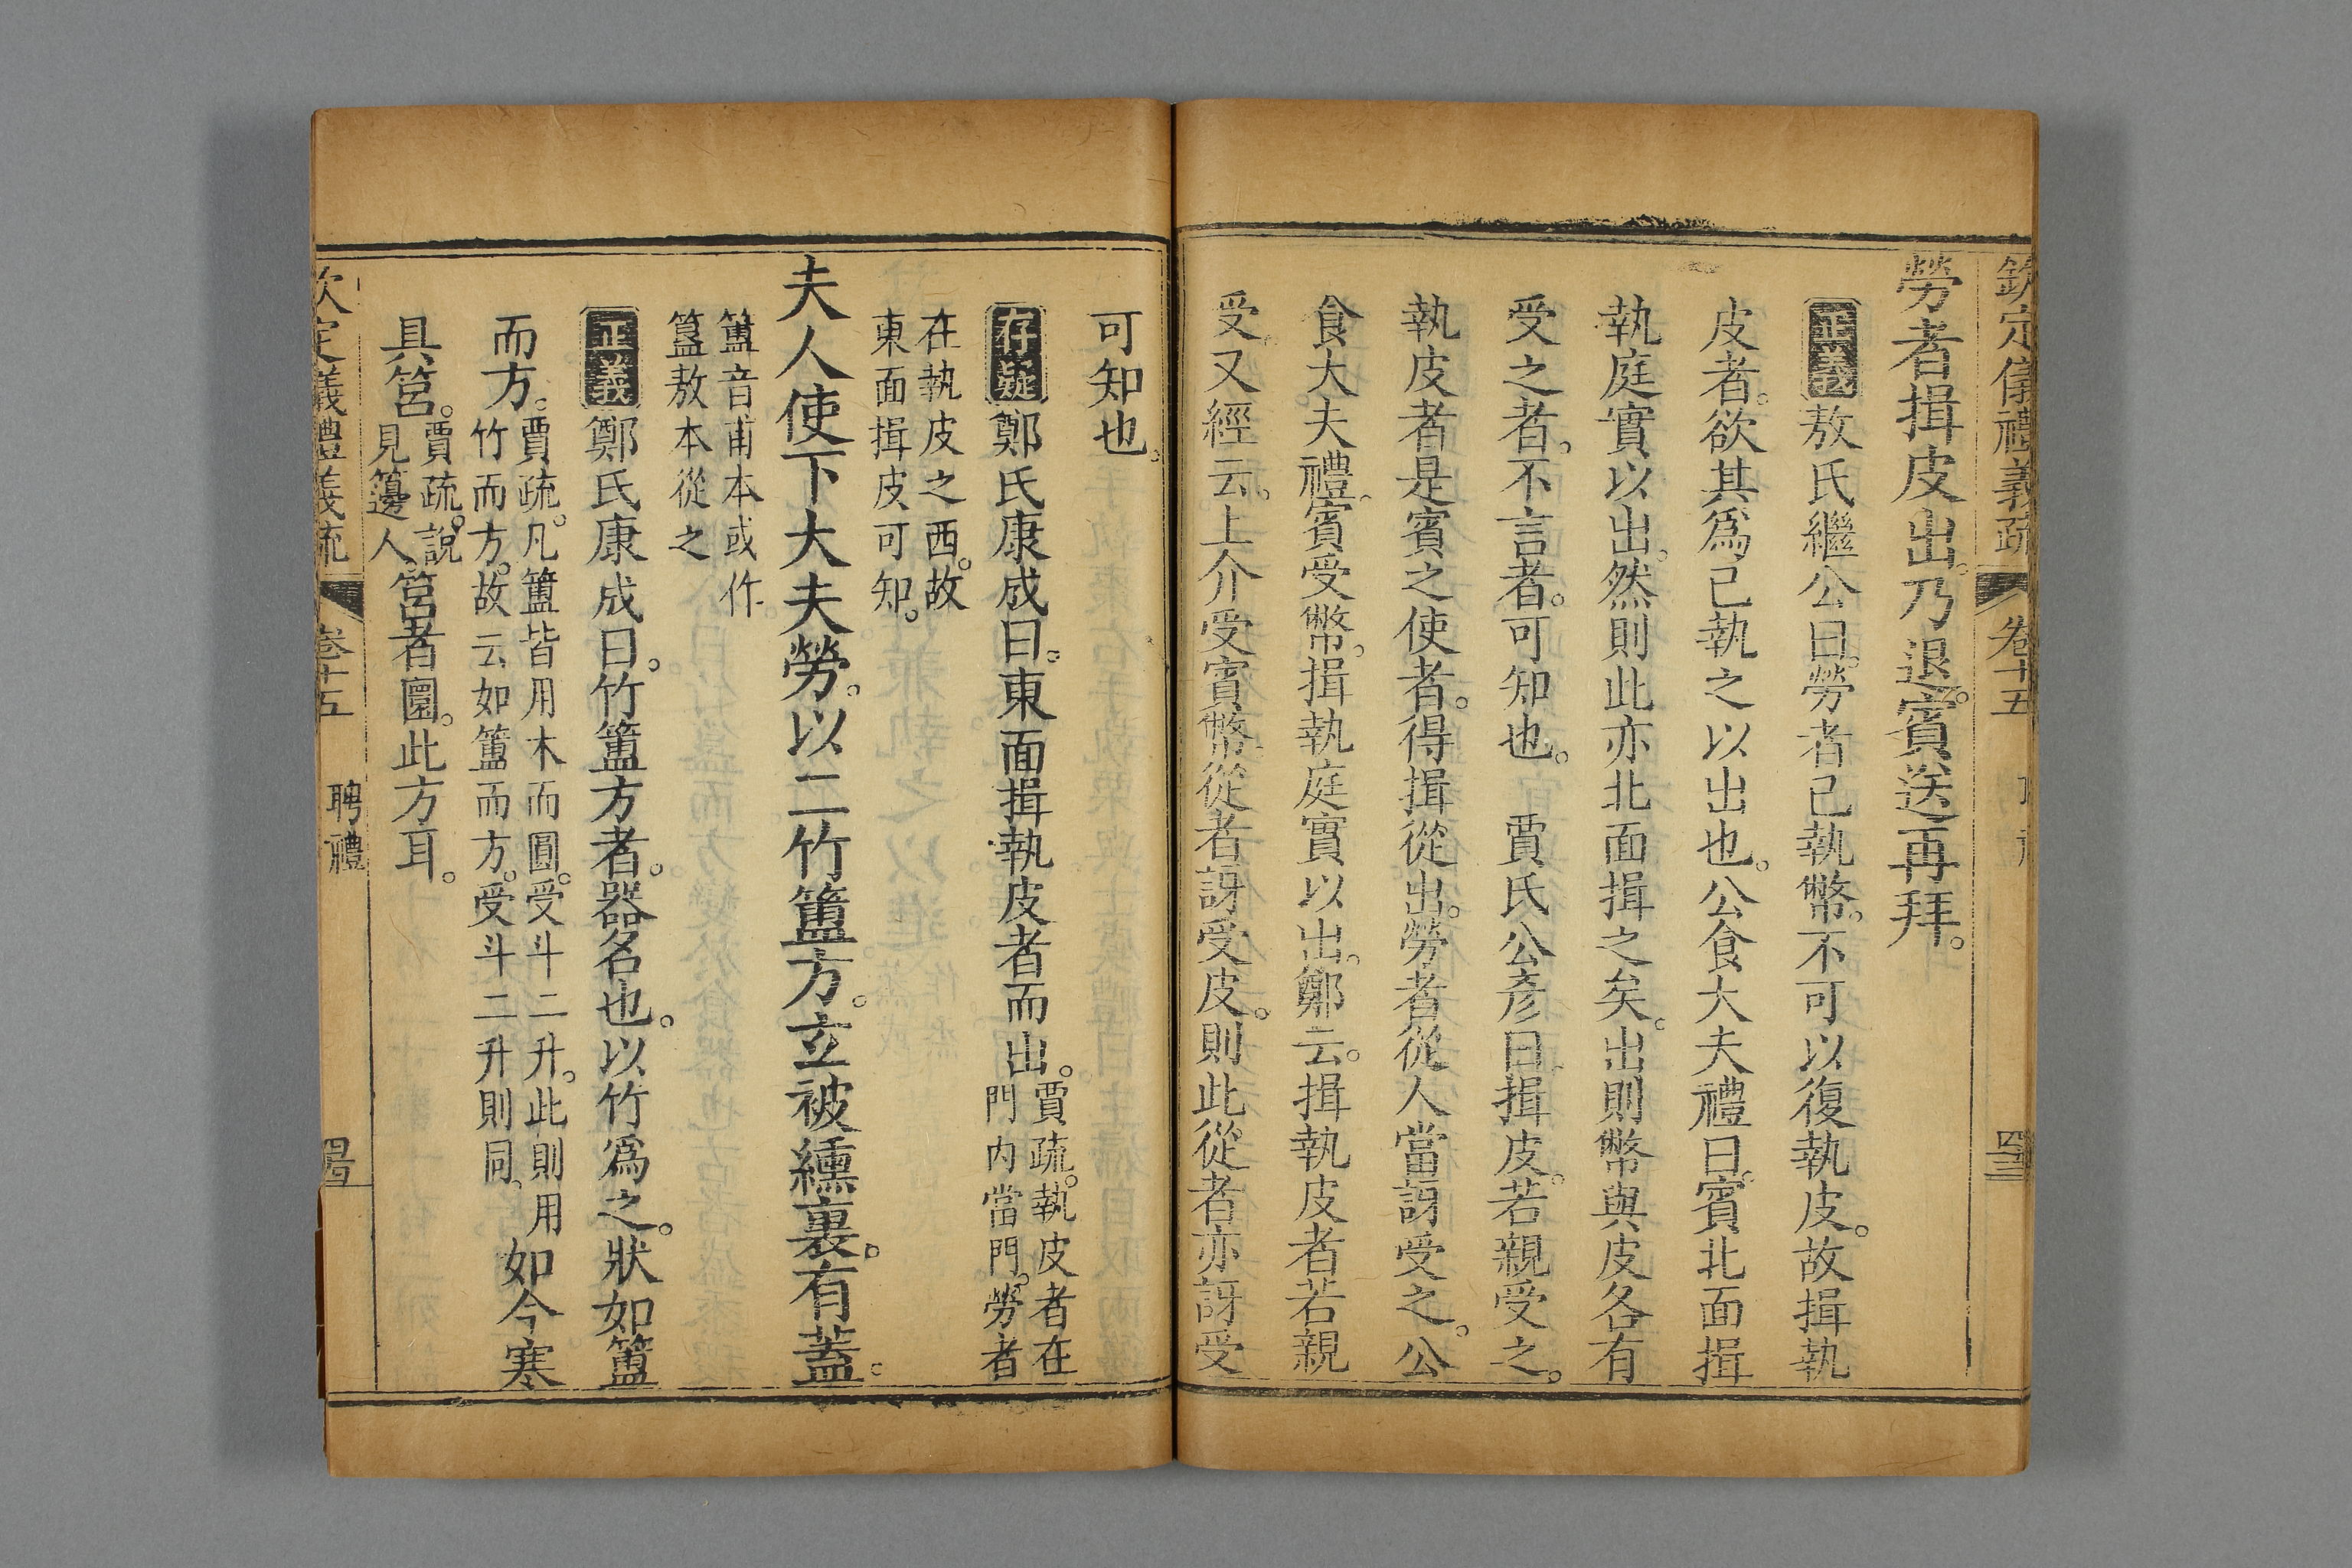 欽定儀禮義疏 卷十五 四三
勞者揖皮出。乃退。賓送再拜。
正義敖氏繼公曰。勞者已執幣。不可以復執皮。故揖執
皮者。欲其爲己執之以出也。公食大夫禮曰。賓北面揖
執庭實以出。然則此亦北面揖之矣。出則幣與皮各有
受之者。不言者。可知也。 賈氏公彥曰。揖皮。若親受之。
執皮者是賓之使者。得揖從出。勞者從人當訝受之。公
食大夫禮。賓受幣。揖執庭實以出。鄭云。揖執皮者若親
受。又經云。上介受賓幣。從者訝受皮。則此從者亦訝受
可知也。
存疑鄭氏康成曰。東面揖執皮者而出。賈疏。執皮者在
門內當門。勞者
在執皮之西。故
東面揖皮可知。
夫人使下大夫勞。以二竹簠方。立被纁裏。有蓋。
簠音甫本或作
簋敖本從之
正義鄭氏康成曰。竹簠方者。器名也。以竹爲之。狀如簠
而方。賈疏。凡簠皆用木而圓。受斗二升。此則用
竹而方。故云如簠而方。受斗二升則同。如今寒
具筥。賈疏。說
見籩人。筥者圜。此方耳。
欽定儀禮義疏 卷十五 聘禮 四